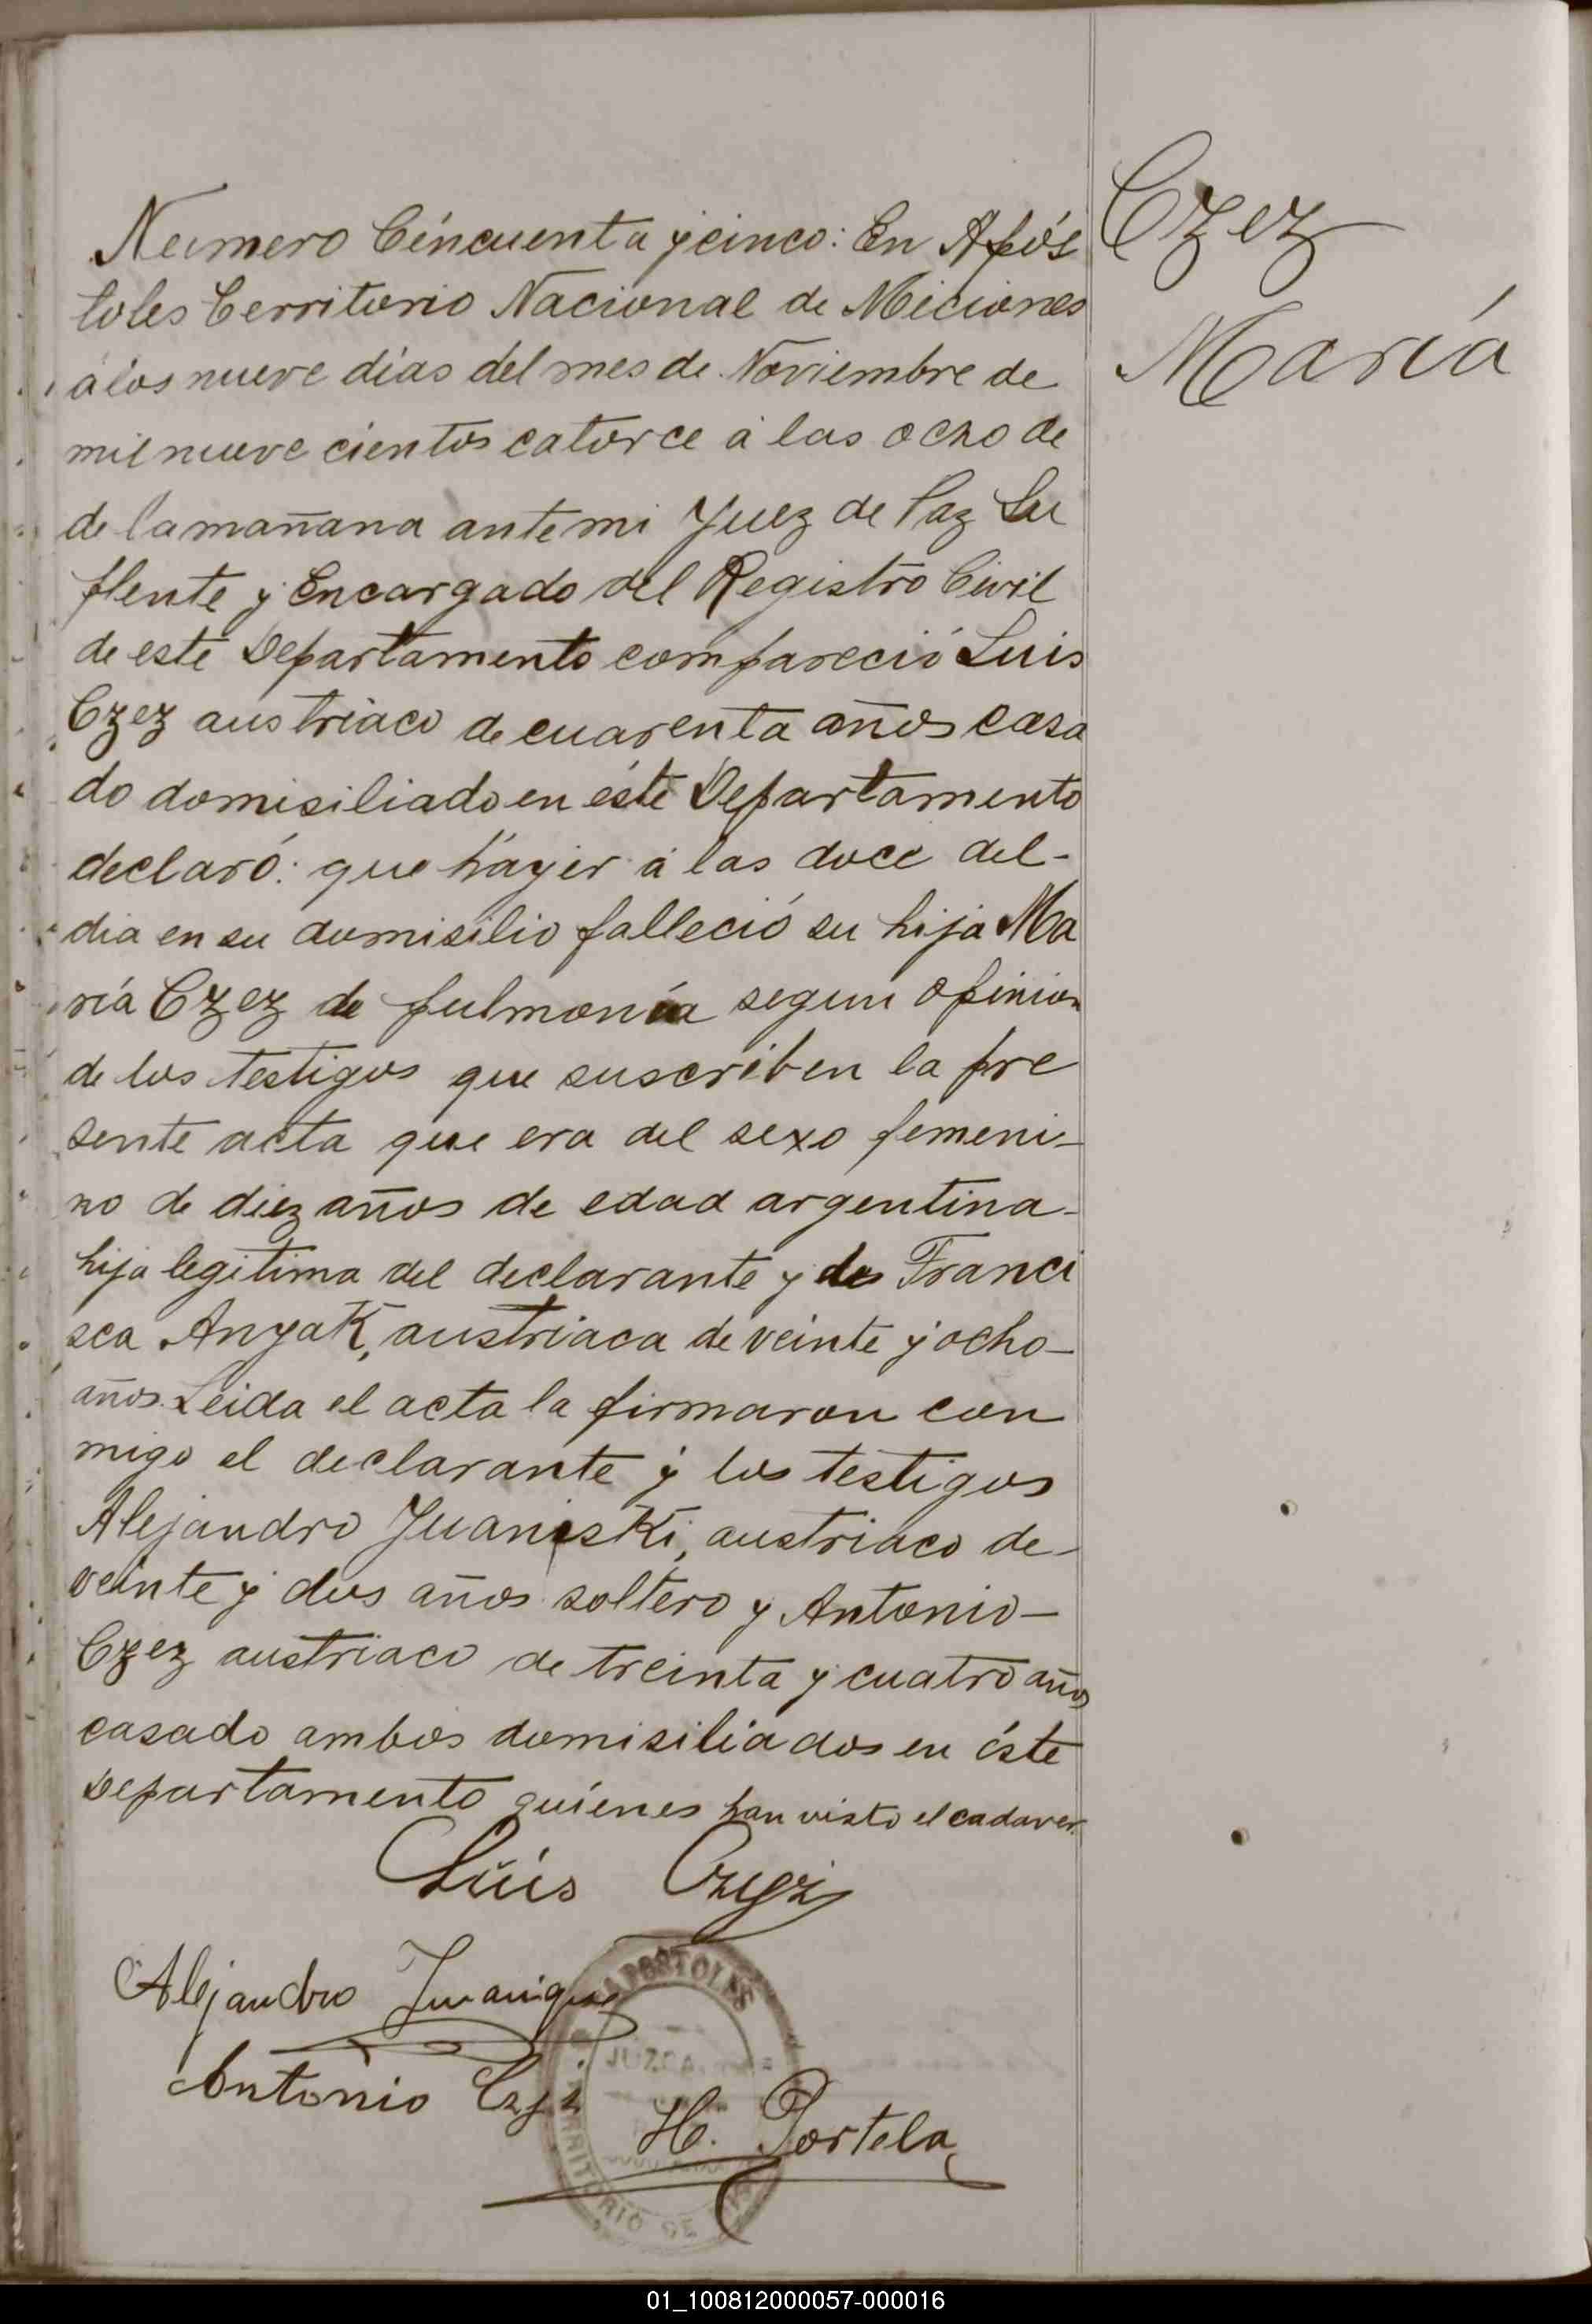 Numero Cincuenta y cinco: En Após
toles Territorio Nacional de Miciones
á los nueve días del mes de Noviembre de
mil nueve cientos catorce á las ocho de
de la mañana ante mi Juez de Paz Su
plente y Encargado del Registro Civil
de este Departamento compareció Luis
Czez austriaco de cuarenta años casa
do domisiliado en éste Departamento
declaró: que háyer á las doce del-
dia en su domisilio falleció su hija Ma
ría Czez de pulmonía segun opinion
de los testigos que suscriben la pre
sente acta que era del sexo femeni-
no de diez años de edad argentina-
hija legitima del declarante y de Franci
sca Anyak, austriaca de veinte y ocho-
años. Leida el acta la firmaron con
migo el declarante y los testigos
Alejandro Juaniski, austriaco de-
veinte y dos años soltero y Antonio-
Czez austriaco de treinta y cuatro años
casado ambos domisiliados en éste
Departamento quíenes han visto el cadaver.
Czez
María
Luis
Alejandro
Antonio
H. Portela
APOSTOLES
TERRITORIO DE
01_100812000057-000016